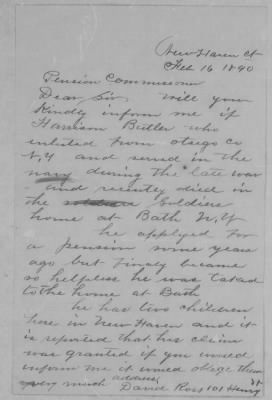 New Haven Ct
Feb 16 1890
Pension Commissioner
Dear Sir will you
Kindly inform me if
Harrison Butler who
inlisted from otsego co
N,Y and served in the
navy during the late war
and recently died in
the Soldiers
home at Bath N,Y
he applyed for
a pension some years
ago but finaly became
so helpless he was taked
to the home at Bath
he has two children
here in New Haven and it
is reported that his claim
was granted if you would
inform me it would oblege them
very much address
David Ross 101 Henry st